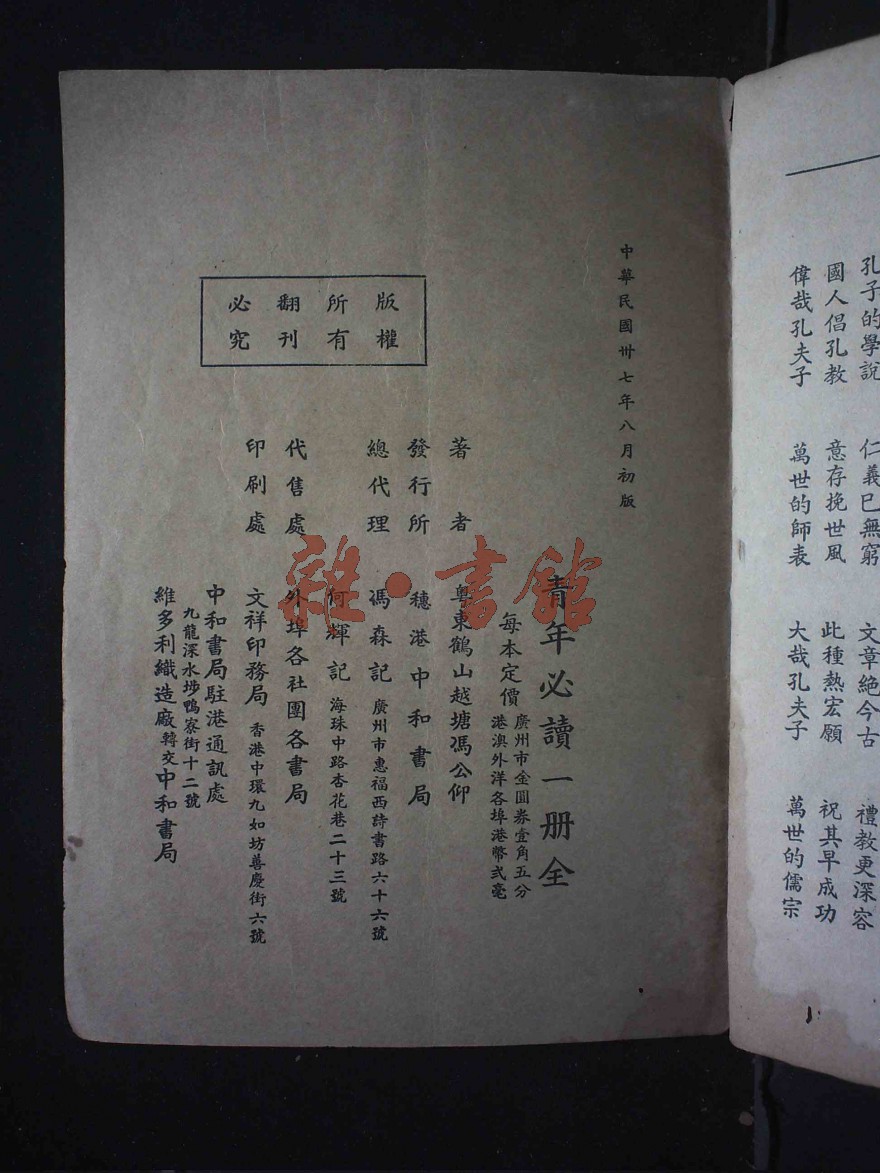 孔子的學說　仁義已無窮　文章絕今古　禮教更深容
國人倡孔教　意存挽世風　此種熱宏願　祝其早成功
偉哉孔夫子　萬世的師表　大哉孔夫子　萬世的儒宗
中華民國卅七年八月初版
青年必讀一册全
每本定價
廣州市金圓券壹角五分
港澳外洋各埠港幣弍毫
著者　粵東鶴山越塘馮公仰
發行所　穗港中和書局
總代理　馮森記　廣州市惠福西詩書路六十六號
何輝記　海珠中路杏花巷二十三號
代售處　外埠各社團各書局
印刷處　文祥印務局　香港中環九如坊善慶街六號
中和書局駐港通訊處
九龍深水埗鴨寮街十二號
維多利織造廠轉交中和書局
版權
所有
翻刊
必究
雜·書館